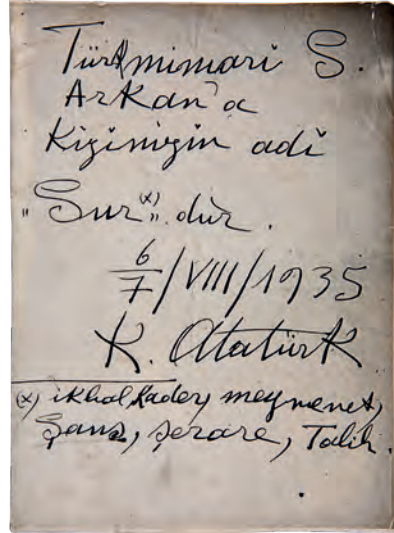 Türk mimari S.
Arkan'a
Kizinizin adi
"Sur(x)".dur.
6/7/VIII/1935
K. Atatürk
(x) ikbal, kader, meymenet,
Şans, şerare, Talih.